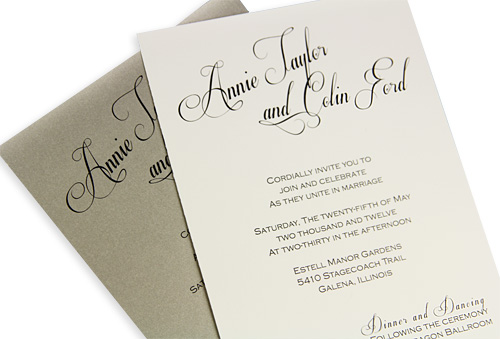 Annie Taylor
and Colin Ford
Cordially invite you to
join and celebrate
As they unite in marriage
Saturday, the twenty-fifth of May
two thousand and twelve
At two-thirty in the afternoon
Estell Manor Gardens
5410 Stagecoach Trail
Galena, Illinois
Dinner and Dancing
Following the ceremony
Ballroom
Annie